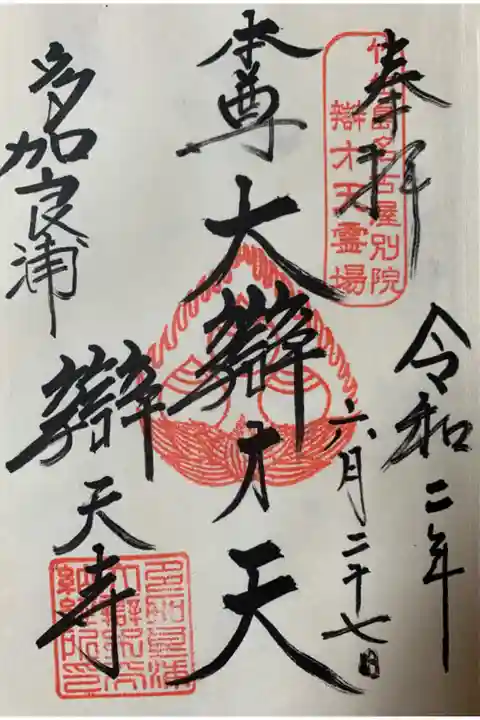 奉拝
竹生島名古屋別院
辯才天霊場
令和二年
六月二十七日
本尊
大辯才天
多加良浦
辯天寺